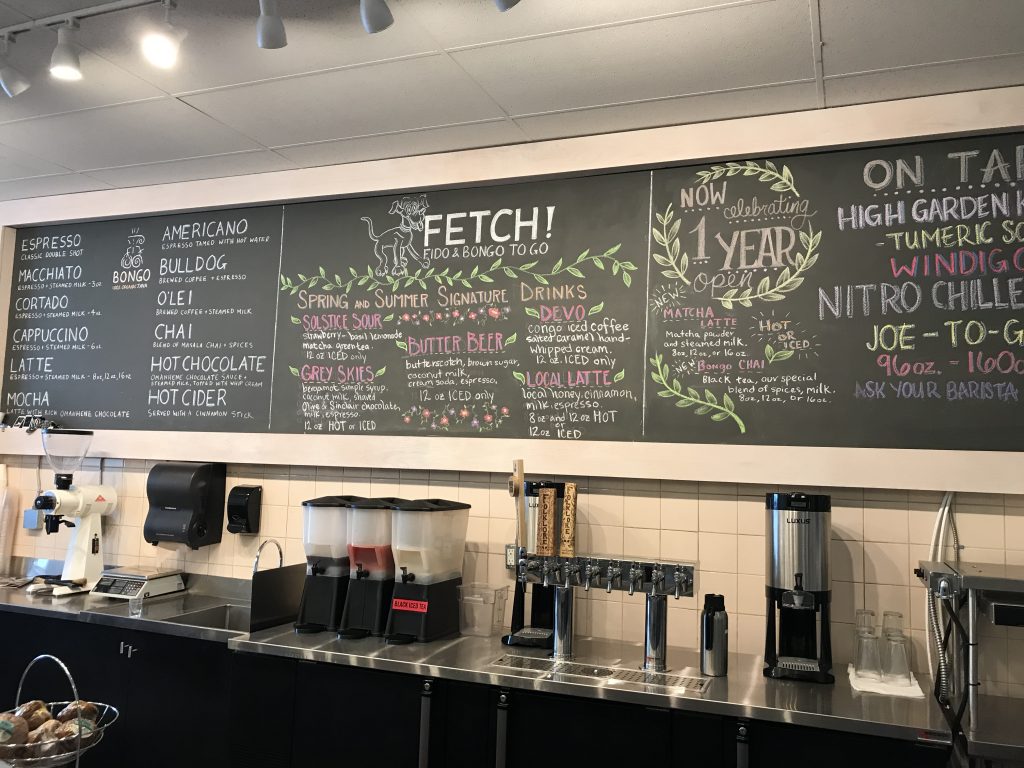 ESPRESSO
CLASSIC DOUBLE SHOT
MACCHIATO
ESPRESSO + STEAMED MILK - 3oz
CORTADO
ESPRESSO + STEAMED MILK - 4oz
CAPPUCCINO
ESPRESSO + STEAMED MILK - 6oz
LATTE
ESPRESSO + STEAMED MILK - 8oz, 12oz, 16oz
MOCHA
LATTE WITH RICH OMANHENE CHOCOLATE
BONGO
AMERICANO
ESPRESSO TAMED WITH HOT WATER
BULLDOG
BREWED COFFEE + ESPRESSO
O'LEI
BREWED COFFEE + STEAMED MILK
CHAI
BLEND OF MASALA CHAI + SPICES
HOT CHOCOLATE
OMANHENE CHOCOLATE SAUCE +
STEAMED MILK, TOPPED WITH WHIP CREAM
HOT CIDER
SERVED WITH A CINNAMON STICK
FETCH!
FIDO & BONGO TO GO
SPRING AND SUMMER SIGNATURE DRINKS
SOLSTICE SOUR
strawberry - basil lemonade
matcha green tea.
12 oz ICED only
GREY SKIES
bergamot simple syrup,
coconut milk, shaved
Olive & Sinclair chocolate,
milk, espresso.
12 oz HOT or ICED
BUTTER BEER
butterscotch, brown sugar,
coconut milk,
cream soda, espresso,
12 oz ICED only
DEVO
congo iced coffee
salted caramel hand-
whipped cream.
12 oz ICED only
LOCAL LATTE
local honey, cinnamon,
milk, espresso.
8 oz and 12 oz HOT or
12 oz ICED
NOW
celebrating
1 YEAR
open
NEW
MATCHA
LATTE
Matcha powder
and steamed milk.
8oz, 12oz, or 16oz.
HOT
or
ICED
NEW
BONGO CHAI
Black tea, our special
blend of spices, milk.
8oz, 12oz, or 16oz.
ON TAP
HIGH GARDEN K
-TUMERIC SO
WINDIGO
NITRO CHILLE
JOE-TO-G
96oz. - 160o
ASK YOUR BARISTA
BLACK ICED TEA
FOLKLORE
LUXUS